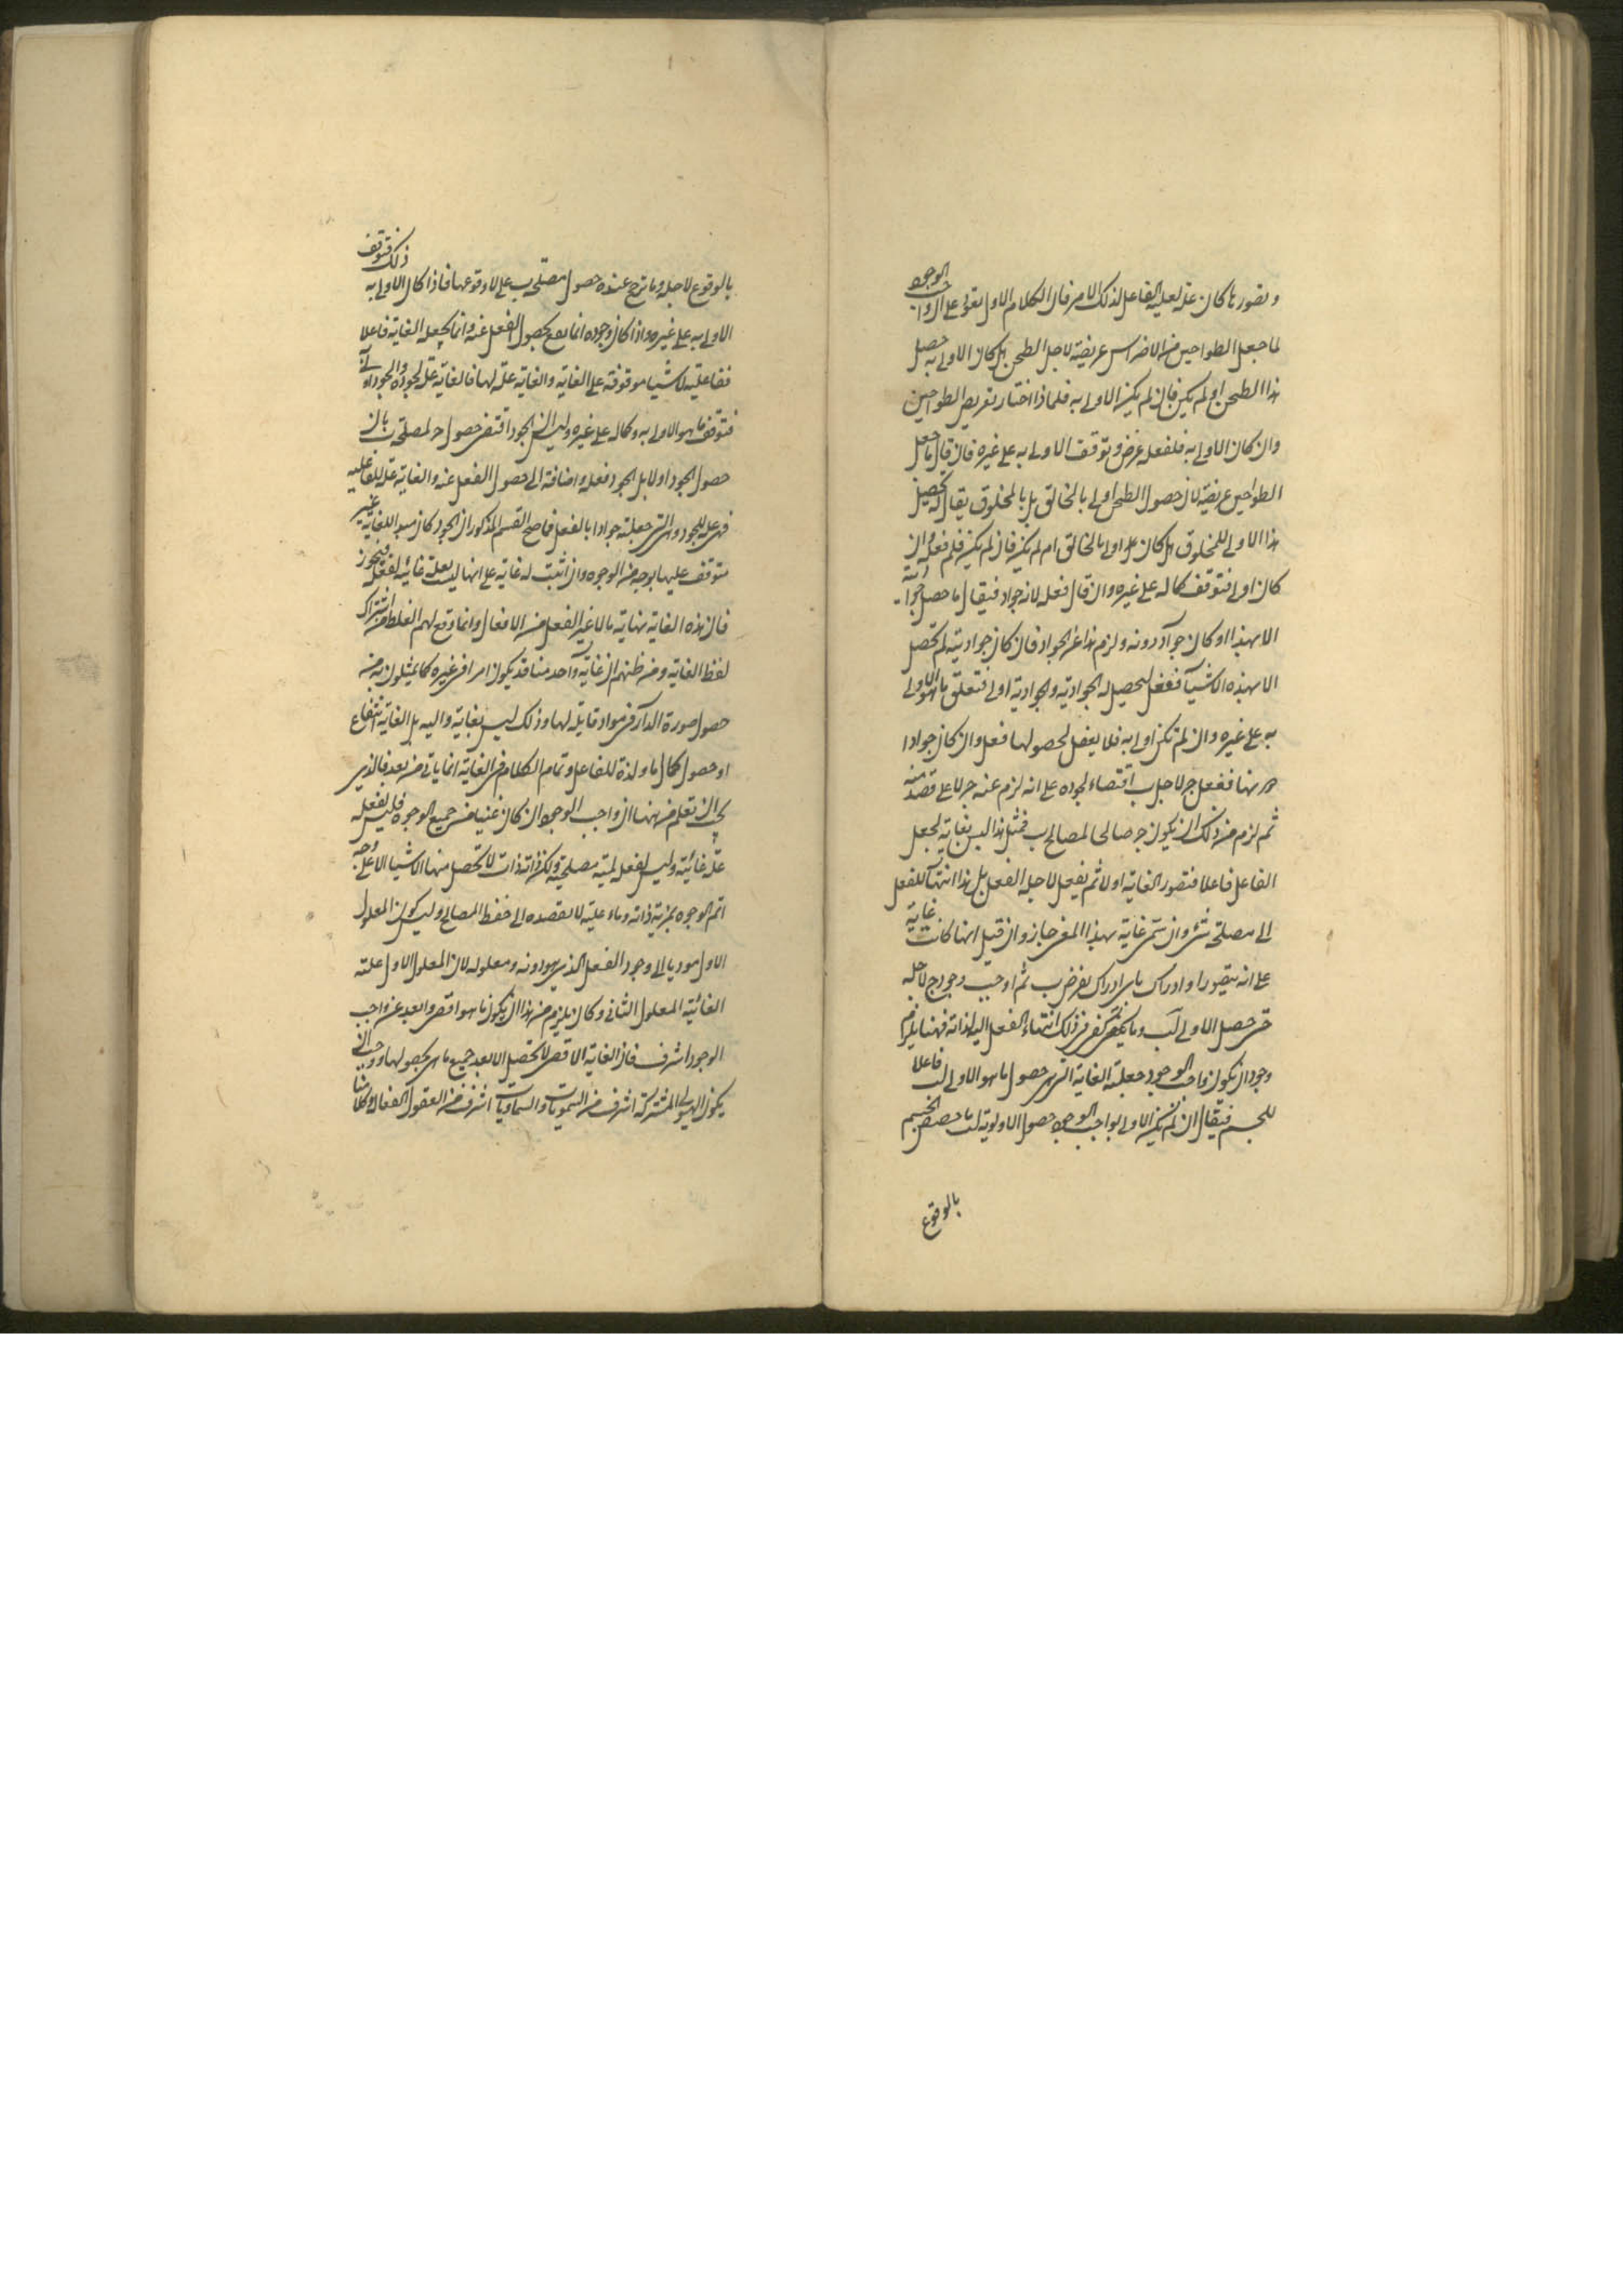 وتصور ما كان علة لعلية الفاعل لذلك الامر فان الكلام الاول يقوى على ان واجب الوجود
لما جعل الطواحين من الاضراس عريضة لاجل الطحن هل كان الاولى به حصل
هذا الطحن او لم يكن فان لم يكن الاولى به فلماذا اختار تعريض الطواحين
وان كان الاولى به فلفعله غرض وتوقف الاولى به على غيره فان قال ما جعل
الطواحين عريضة لان حصول الطحن اولى بالخالق بل بالمخلوق يقال تحصيل
هذا الاولى للمخلوق هل كان هو اولى بالخالق ام لم يكن فان لم يكن فلم فعله وان
كان اولى فتوقف كماله على غيره وان قال فعله لانه جواد فيقال ما حصل جواديته
الا بهذا او كان جوادا دونه ولزم هذا عن الجواد فان كان جواديته لم تحصل
الا بهذه الاشياء ففعل ليحصل له الجوادية والجوادية اولى فتعلق ما هو الاولى
به على غيره وان لم تكن اولى به فلا يفعل لحصولها فعل وان كان جوادا
دونها ففعل ج لاجل ب اقتضاء لجوده على انه لزم عنه ج لا على قصد منه
ثم لزم من ذلك ان يكون ج صالحا لمصالح ب فمثل هذا ليس بغاية لجعل
الفاعل فاعلا فتصور الغاية اولا ثم يفعل لاجله الفعل بل هذا انتهاء للفعل
الى مصلحة شئ وان سمى غاية بهذا المعنى جاز وان قيل انها كانت غاية
على انه يتصور او ادراك باى ادراك يفرض ب ثم اوجب وجود ج لاجله
حتى حصل الاولى لب وما يكفى فى ذلك انتهاء الفعل اليه لذاته فههنا يلزم
وجود ان يكون واجب الوجود جعلته الغاية التى هى حصول ما هو الاولى لب فاعلا
للجسم فيقال ان لم يكن الاولى بواجب الوجود حصول الاولوية لب ما خصص الجسم
بالوقوع
بالوقوع لاجله وما ترجح عنده حصول مصلحة ب على لا وقوعها فاذا كان الاولى به ذلك فتوقف
الاولى به على غيره واذا كان وجوده انما يقع بحصول الفعل عنه وانما يجعله الغاية فاعلا
ففاعليته للاشياء موقوفة على الغاية والغاية علة لها فالغاية علة لجوده والجود اولى به
فتوقف ما هو الاولى به وكماله على غيره وليس ان الجود اقتضى حصول ج لمصلحة ب بان
حصول الجود اولا بل الجود فعله واضافة الى حصول الفعل عنه والغاية علة للفاعلية
فهى علة للجود والتى جعلته جوادا بالفعل فما صح القسم المذكور ان الجود كان مبدا للغاية غير
متوقف عليها بوجه من الوجوه وان اثبت له غاية على انها ليست بعلة غائية لفعله فيجوز
فان هذه الغاية نهاية ما لا غير الفعل من الافعال وانما وقع لهم الغلط من اشتراك
لفظ الغاية ومن ظنهم ان غاية واحد منا قد يكون امرا فى غيره كما يمثلون به من
حصول صورة الدار فى مواد قابلة لها وذلك ليس بغاية والية بل الغاية انتفاع
او حصول كمال ما ولذة للفاعل وتمام الكلام فى الغاية انما ياتى من بعد فالذى
يجب ان تعلم من ههنا ان واجب الوجود ان كان غنيا من جميع الوجوه فليس لفعله
علة غائية وليس لفعله لمية مصلحية ولكن ذاته ذات لا تحصل منها الاشياء الا على وجه
اتم الوجوه بمزية ذاته لا بقصده الى حفظ المصالح وليس كون المعلول
الاول موديا الى وجود الفعل الذى هو دونه ومعلوله لان المعلول الاول علته
الغائية المعلول الثانى وكان يلزم من هذا ان يكون ما هو اقصى وابعد عن واجب
الوجود اشرف فان الغاية الاقصى لا تحصل الا بعد جميع ما هى بحصولها ووجب ان
يكون الهيولى المشتركة اشرف من السموات والسماويات اشرف من العقول الفعالة وكلامنا